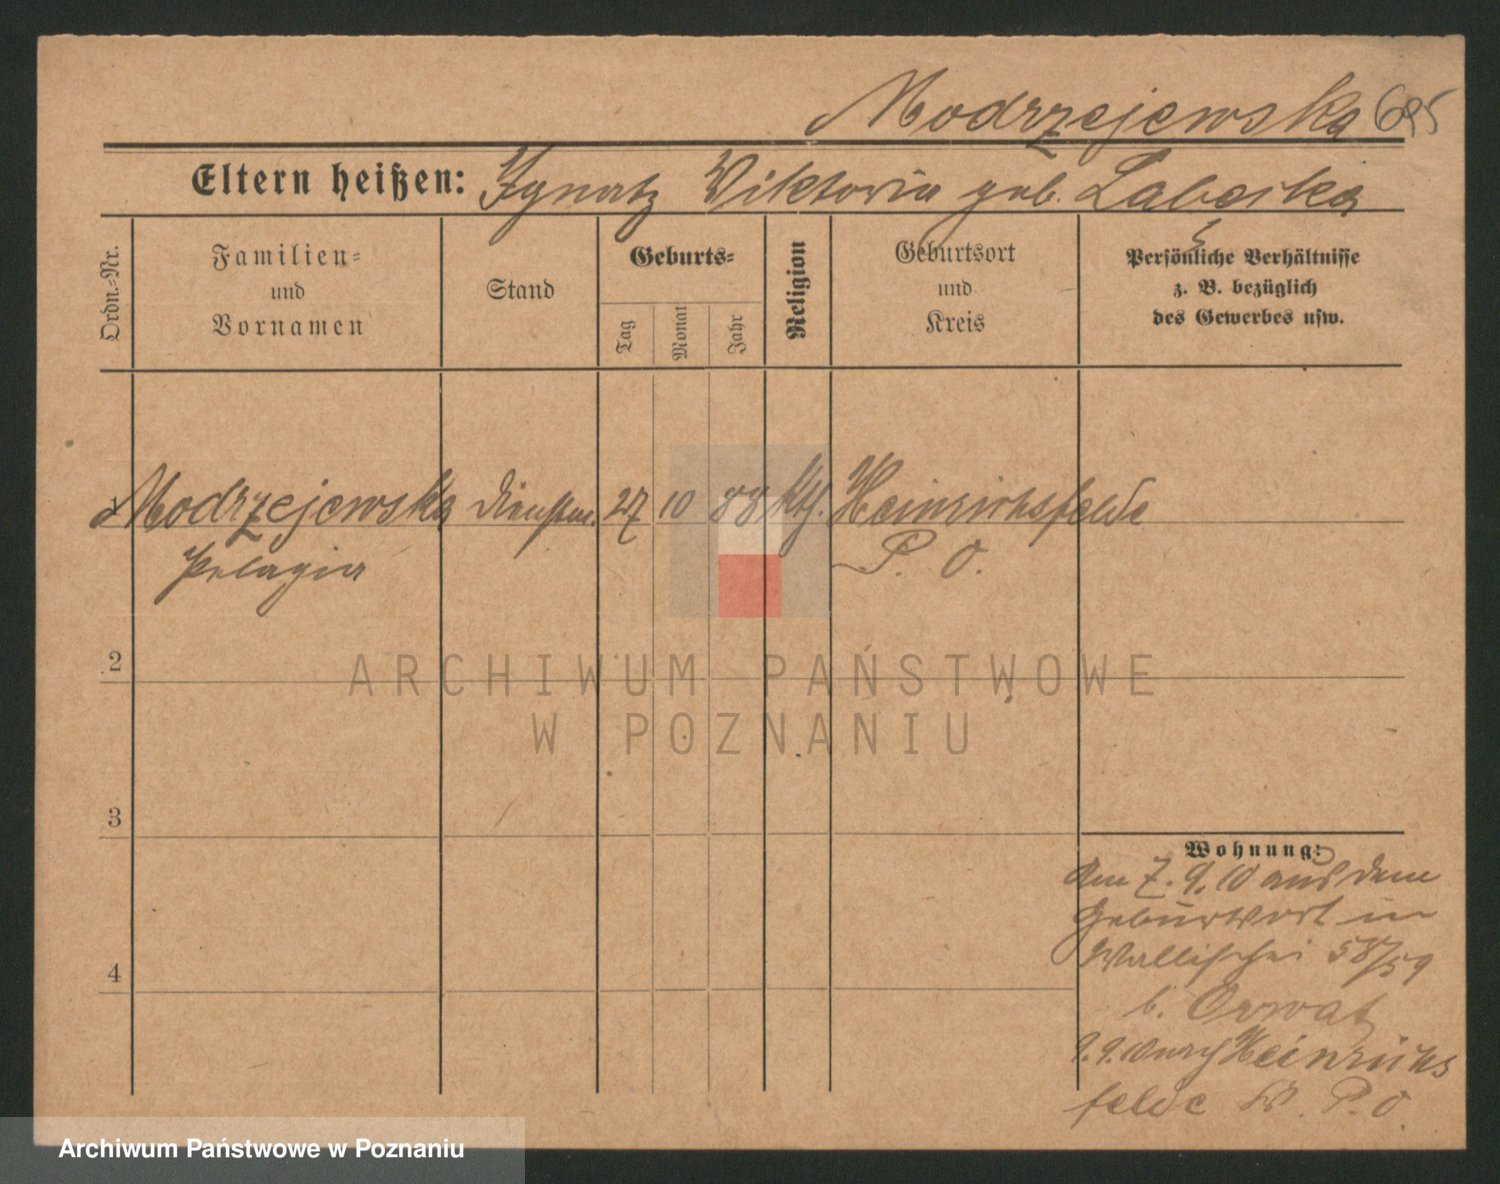 Modrzejewska 695
Eltern heißen: Ignatz Viktoria geb.
Ordn.-Nr.
Familien-
und
Vornamen
Stand
Geburts-
Tag
Monat
Jahr
Religion
Geburtsort
und
Kreis
Persönliche Verhältnisse
z. B. bezüglich
des Gewerbes usw.
1 Modrzejewska Dienstm. 27 10 88 kth. Heinrichsfelde
Pelagia P. O.
2
3
4
Wohnung:
Am 7. 9. 10 aus dem
Geburtsort in
Wallischei 58/59
b.
9. 9. 10 nach Heinrichs
felde W. P. O
ARCHIWUM PAŃSTWOWE
W POZNANIU
Archiwum Państwowe w Poznaniu